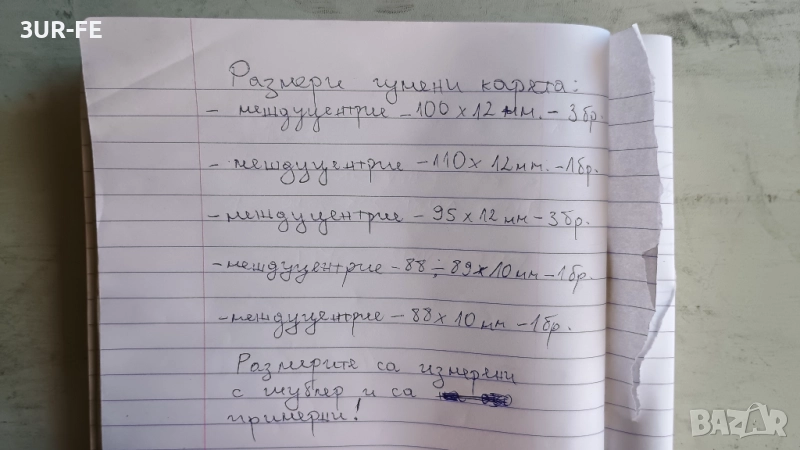 3UR-FE
Размери гумени карета:
- междуцентрие - 100 x 12 мм. - 3 бр.
- междуцентрие - 110 x 12 мм. - 1 бр.
- междуцентрие - 95 x 12 мм - 3 бр.
- междуцентрие - 88 ÷ 89 x 10 мм - 1 бр.
- междуцентрие - 88 x 10 мм - 1 бр.
Размерите са измерени
с шублер и са
примерни!
BAZAR